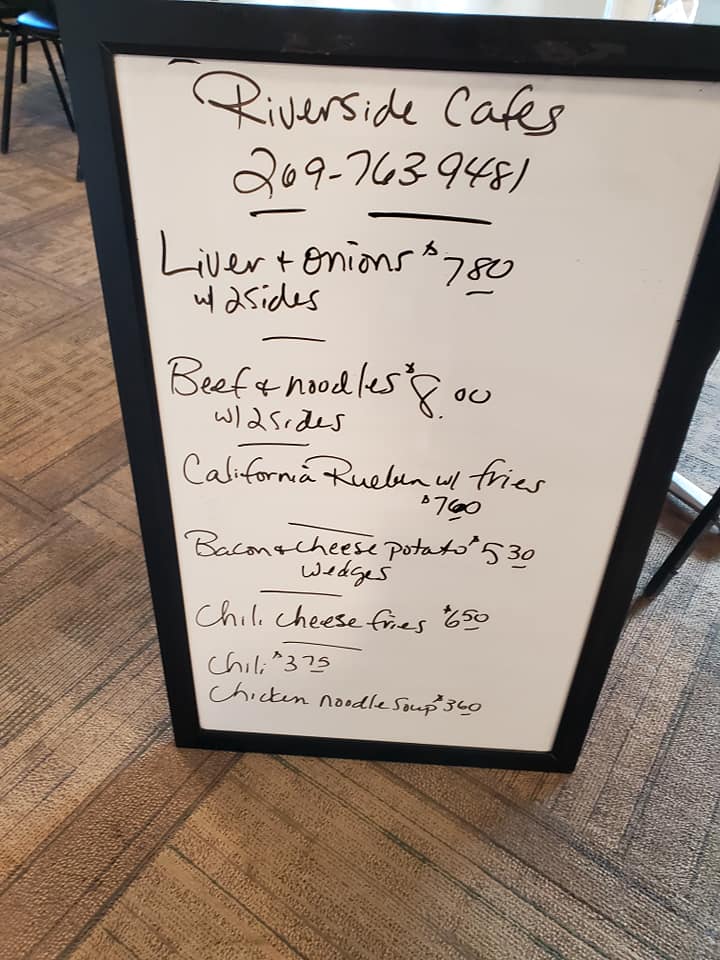 Riverside Cafes
269-763-9481
Liver + onions $780
w/ 2sides
Beef & noodles $8.00
w/ 2sides
California Rueben w/ fries
$760
Bacon & cheese potato $530
wedges
Chili cheese fries $650
Chili $375
Chicken noodle soup $360